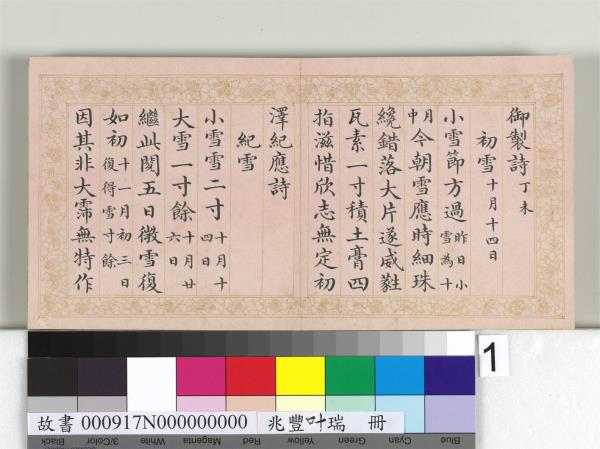 御製詩丁未
初雪十月十四日
小雪節方過昨日小雪為十
月中今朝雪應時細珠
纔錯落大片遂威蕤
瓦素一寸積土膏四
指滋惜欣志無定初
澤紀應詩
紀雪
小雪雪二寸十月十四日
大雪一寸餘十月廿六日
繼此閱五日微雪復
如初十一月初三日復得雪寸餘
因其非大霈無特作
1
故書 000917N000000000 兆豐叶瑞 冊
Black 3/Color White Magenta Red Yellow Green Cyan Blue